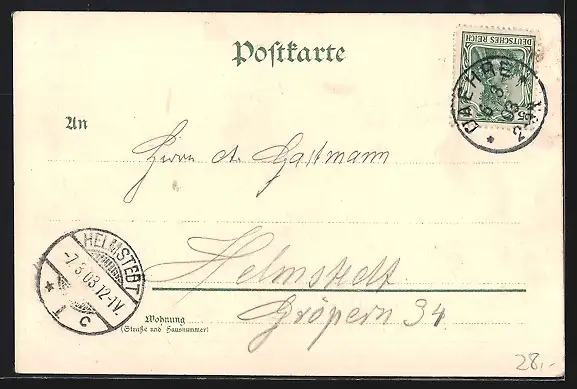 Postkarte
DEUTSCHES REICH
DAEHRE
6 3
03
An
Herrn A. Gastmann
HELMSTEDT
-7.3.03.12-1V.
* 1 c
Helmstedt
Gröpern 34
Wohnung
(Straße und Hausnummer)
28,-